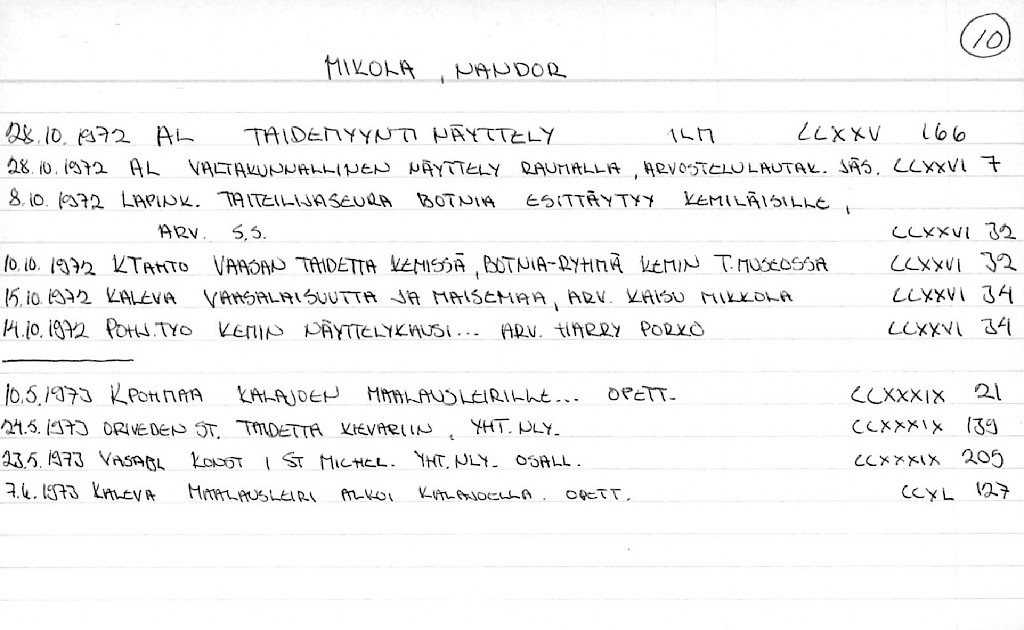 10
MIKOLA, NANDOR
28.10.1972 AL TAIDEMYYNTI NÄYTTELY ILM CCXXV 166
28.10.1972 AL VALTAKUNNALLINEN NÄYTTELY RAUMALLA, ARVOSTELULAUTAK. JÄS. CCXXVI 7
8.10.1972 LAPINK. TAITEILIJASEURA BOTNIA ESITTÄYTYY KEMILÄISILLE,
ARV. S.S. CCXXVI 32
10.10.1972 KTAHTO VAASAN TAIDETTA KEMISSÄ, BOTNIA-RYHMÄ KEMIN T.MUSEOSSA CCXXVI 32
15.10.1972 KALEVA VAASALAISUUTTA JA MAISEMAA, ARV. KAISU MIKKOLA CCXXVI 34
14.10.1972 POHJ.TYO KEMIN NÄYTTELYKAUSI... ARV. HARRY PORKO CCXXVI 34
10.5.1973 KPOHMAA KALAJOEN MAALAUSLEIRILLE... OPETT. CCXXXIX 21
24.5.1973 ORIVEDEN ST. TAIDETTA KIEVARIIN, YHT.NLY. CCXXXIX 139
23.5.1973 VASABL KONST I ST MICHEL. YHT.NLY. OSALL. CCXXXIX 205
7.6.1973 KALEVA MAALAUSLEIRI ALKOI KALAJOELLA. OPETT. CCXL 127